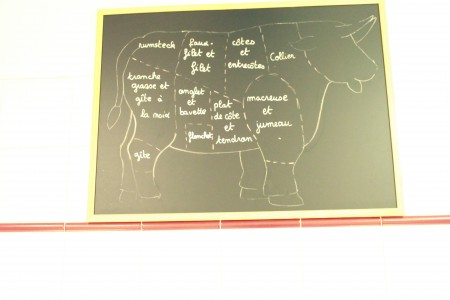 rumsteck
faux-
filet et
filet
côtes
et
entrecôtes
Collier
tranche
grasse et
gîte à
la noix
onglet
et
bavette
plat
de côte
et
tendron
macreuse
et
jumeau
flanchet
gîte